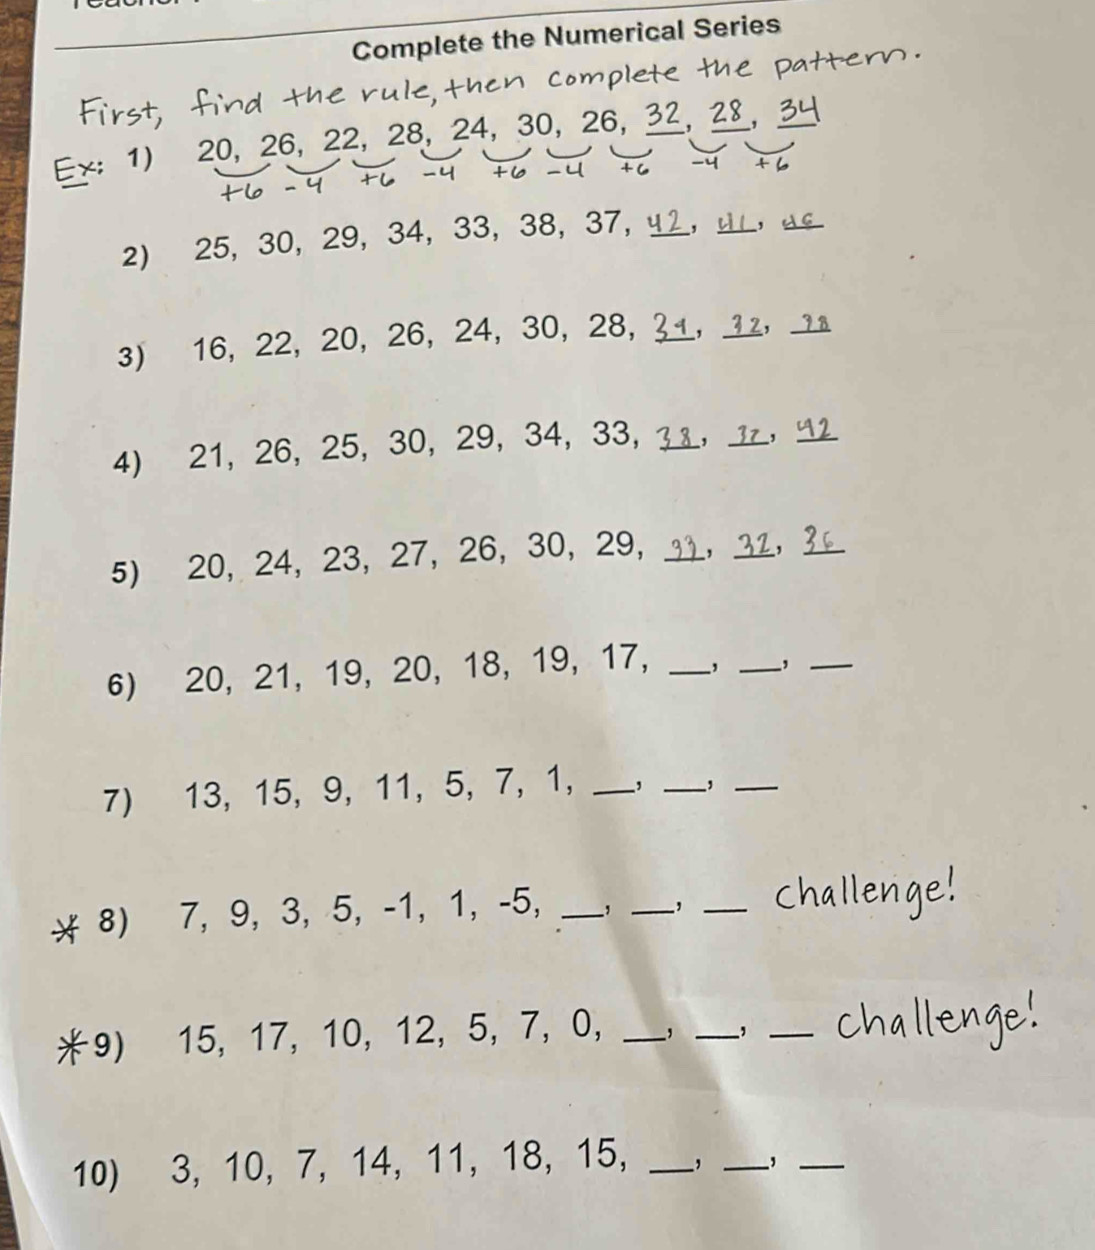 Complete the Numerical Series
First, find the rule, then complete the pattern.
Ex: 1) 20, 26, 22, 28, 24, 30, 26, 32, 28, 34
+6 -4 +6 -4 +6 -4 +6 -4 +6
2) 25, 30, 29, 34, 33, 38, 37, 42, 41, 46
3) 16, 22, 20, 26, 24, 30, 28, 34, 32, 38
4) 21, 26, 25, 30, 29, 34, 33, 38, 37, 42
5) 20, 24, 23, 27, 26, 30, 29, 33, 32, 36
6) 20, 21, 19, 20, 18, 19, 17, __, __, __
7) 13, 15, 9, 11, 5, 7, 1, __, __, __
* 8) 7, 9, 3, 5, -1, 1, -5, __, __, __ challenge!
* 9) 15, 17, 10, 12, 5, 7, 0, __, __, __ challenge!
10) 3, 10, 7, 14, 11, 18, 15, __, __, __